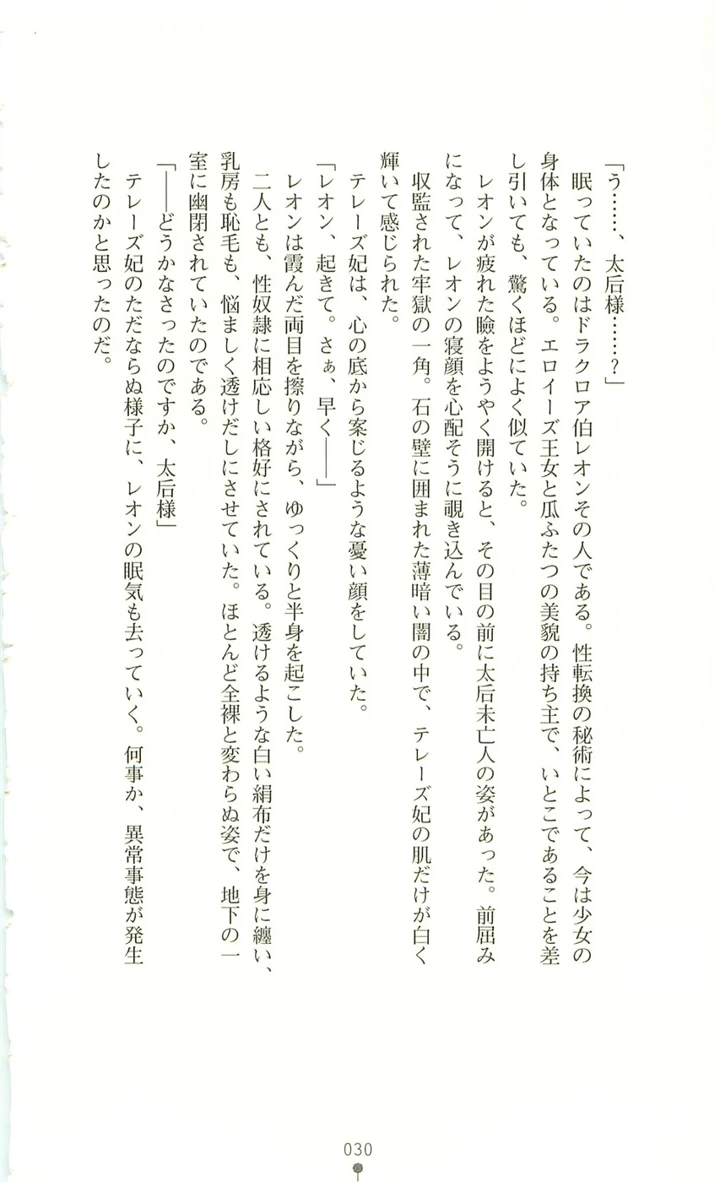 「う……、太后様……？」
眠っていたのはドラクロア伯レオンその人である。性転換の秘術によって、今は少女の
身体となっている。エロイーズ王女と瓜ふたつの美貌の持ち主で、いとこであることを差
し引いても、驚くほどによく似ていた。
レオンが疲れた瞼をようやく開けると、その目の前に太后未亡人の姿があった。前屈み
になって、レオンの寝顔を心配そうに覗き込んでいる。
収監された牢獄の一角。石の壁に囲まれた薄暗い闇の中で、テレーズ妃の肌だけが白く
輝いて感じられた。
テレーズ妃は、心の底から案じるような憂い顔をしていた。
「レオン、起きて。さぁ、早く――」
レオンは霞んだ両目を擦りながら、ゆっくりと半身を起こした。
二人とも、性奴隷に相応しい格好にされている。透けるような白い絹布だけを身に纏い、
乳房も恥毛も、悩ましく透けだしにさせていた。ほとんど全裸と変わらぬ姿で、地下の一
室に幽閉されていたのである。
「――どうかなさったのですか、太后様」
テレーズ妃のただならぬ様子に、レオンの眠気も去っていく。何事か、異常事態が発生
したのかと思ったのだ。
030